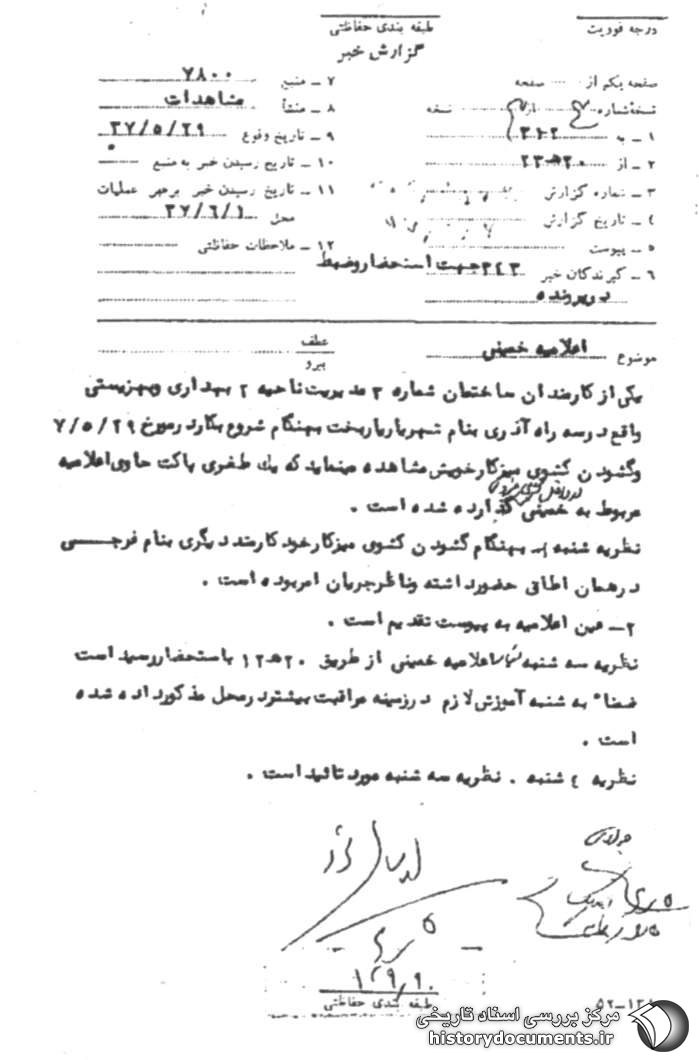 درجه فوریت
طبقه بندی حفاظتی
گزارش خبر
صفحه یکم از صفحه
نسخه شماره از نسخه
۱ ـ به ۳۱۲
۲ ـ از ۲۰ هـ ۲۳
۳ ـ شماره گزارش
۴ ـ تاریخ گزارش
۵ ـ پیوست
۶ ـ گیرندگان خبر ۳۴۳ جهت استحضار و ضبط
در پرونده
۷ ـ منبع ۷۸۰۰
۸ ـ منشأ مشاهدات
۹ ـ تاریخ وقوع ۳۷/۵/۲۹
۱۰ ـ تاریخ رسیدن خبر به منبع
۱۱ ـ تاریخ رسیدن خبر برهبر عملیات
محل ۳۷/۶/۱
۱۲ ـ ملاحظات حفاظتی
موضوع اعلامیه خمینی
عطف
پیرو
یکی از کارمندان ساختمان شماره ۳ مدیریت ناحیه ۲ بهداری و بهزیستی
واقع در سه راه آذری بنام شهریار یاربخت بهنگام شروع بکار در مورخ ۷/۵/۲۹
و گشودن کشوی میز کار خویش مشاهده مینماید که یک طغری پاکت حاوی اعلامیه
مربوط به خمینی گذارده شده است .
نظریه شنبه ۱ـ بهنگام گشودن کشوی میز کار خود کارمند دیگری بنام فرجی
در همان اطاق حضور داشته و ناظر جریان امر بوده است .
۲ـ عین اعلامیه به پیوست تقدیم است .
نظریه سه شنبه اعلامیه خمینی از طریق ۲۰ هـ ۱۲ باستحضار رسید است
ضمنا" به شنبه آموزش لازم در زمینه مراقبت بیشتر در محل مذکور داده شده
است .
نظریه ۴ شنبه . نظریه سه شنبه مورد تائید است .
طبقه بندی حفاظتی
مرکز بررسی اسناد تاریخی
historydocuments.ir